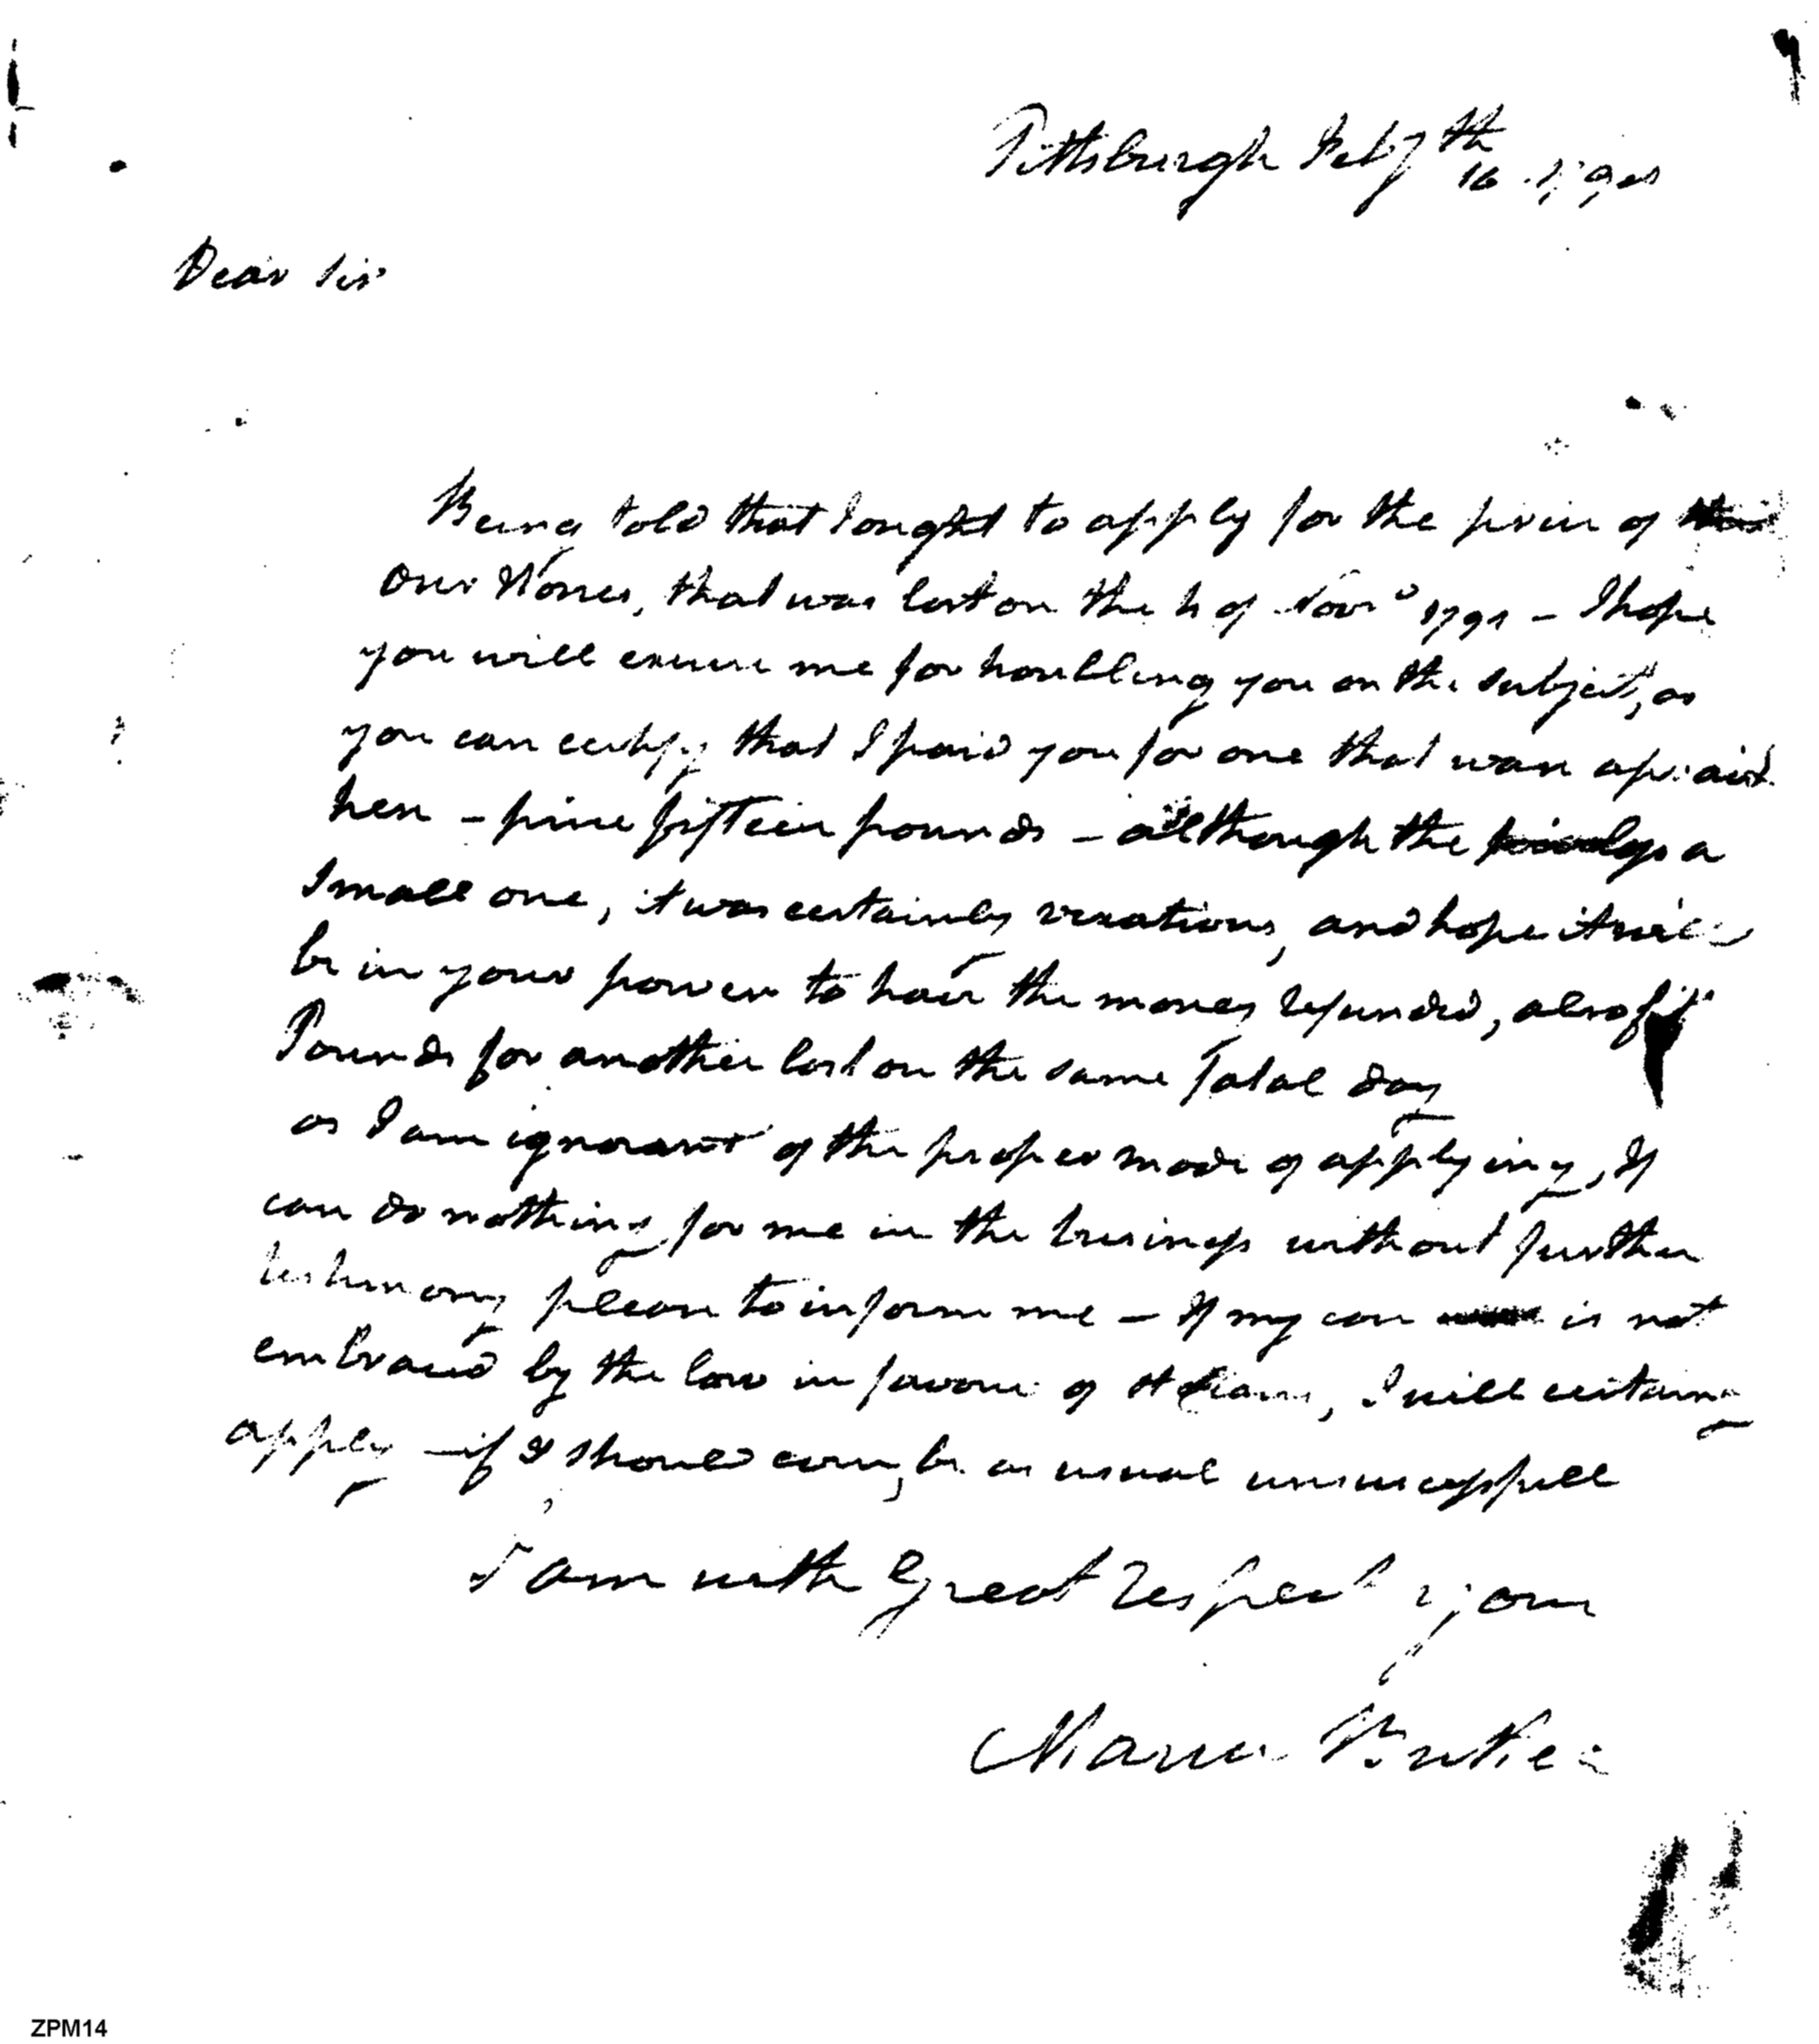 Pittsburgh Feby th 16
Dear Sir
Being told that I ought to apply for the price of
our Horses, that was lost on the 4 of Novr 1791 – I hope
you will excuse me for troubling you on the subject, as
you can certify that I paid you for one that was apraisd
here – price fifteen pounds – although the a
small one, it was certainly vexatious, and hope it will
be in your power to have the money refunded, also
Pounds for another lost on the same Fatal day
as I am ignorant of the proper mode of applying, If
can do nothing for me in the business without further
testimony please to inform me – If my case is not
embraced by the law in favour of , I will certainy
apply – if I should even, be as usual unsuccessfull
I am with Great respect your
Maria Butler
ZPM14